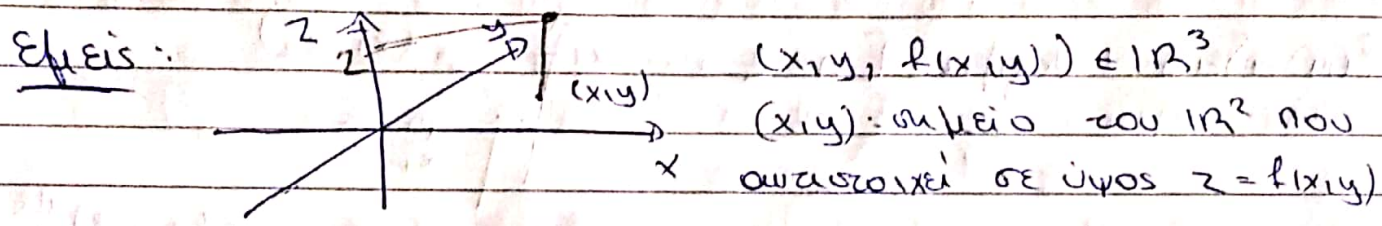 Εμείς:
z
z
y
(x,y)
x
(x,y, f(x,y)) ∈ ℝ³
(x,y): σημείο του ℝ² που
αντιστοιχεί σε ύψος z = f(x,y)